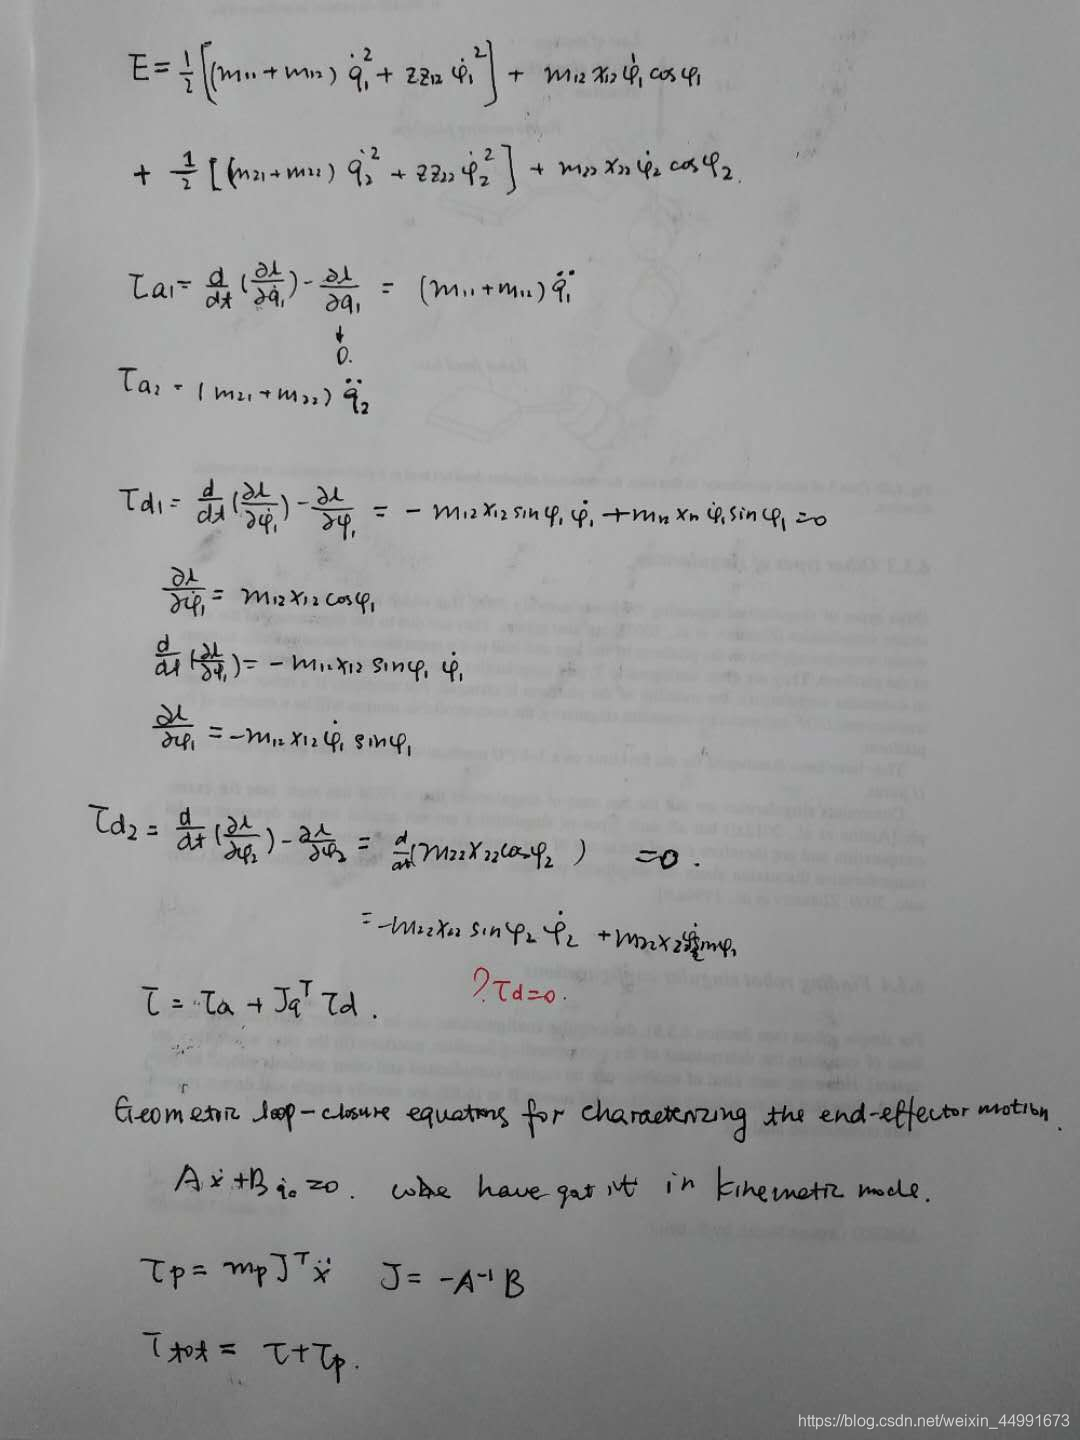 E = 1/2 [(m₁₁+m₁₂) q̇₁² + zz₁₂ φ̇₁²] + m₁₂ x₁₂ φ̇₁ cosφ₁
+ 1/2 [(m₂₁+m₂₂) q̇₂² + zz₂₂ φ̇₂²] + m₂₂ x₂₂ φ̇₂ cosφ₂.
τa₁ = d/dt (∂L/∂q̇₁) - ∂L/∂q₁ = (m₁₁+m₁₂) q̈₁
↓
0.
τa₂ = (m₂₁+m₂₂) q̈₂
τd₁ = d/dt (∂L/∂φ̇₁) - ∂L/∂φ₁ = - m₁₂ x₁₂ sinφ₁ φ̇₁ + m₁₂ x₁₂ φ̇₁ sinφ₁ = 0
∂L/∂φ̇₁ = m₁₂ x₁₂ cosφ₁
d/dt (∂L/∂φ̇₁) = - m₁₂ x₁₂ sinφ₁ φ̇₁
∂L/∂φ₁ = -m₁₂ x₁₂ φ̇₁ sinφ₁
τd₂ = d/dt (∂L/∂φ̇₂) - ∂L/∂φ₂ = d/dt (m₂₂ x₂₂ cosφ₂ ) = 0.
= -m₂₂ x₂₂ sinφ₂ φ̇₂ + m₂₂ x₂₂
τ = τa + Jqᵀ τd. ? τd=0.
Geometric loop-closure equations for characterizing the end-effector motion.
A ẋ + B q̇a = 0. have got it in kinematic mode.
τp = mp Jᵀ ẍ J = -A⁻¹ B
τtot = τ + τp.
https://blog.csdn.net/weixin_44991673